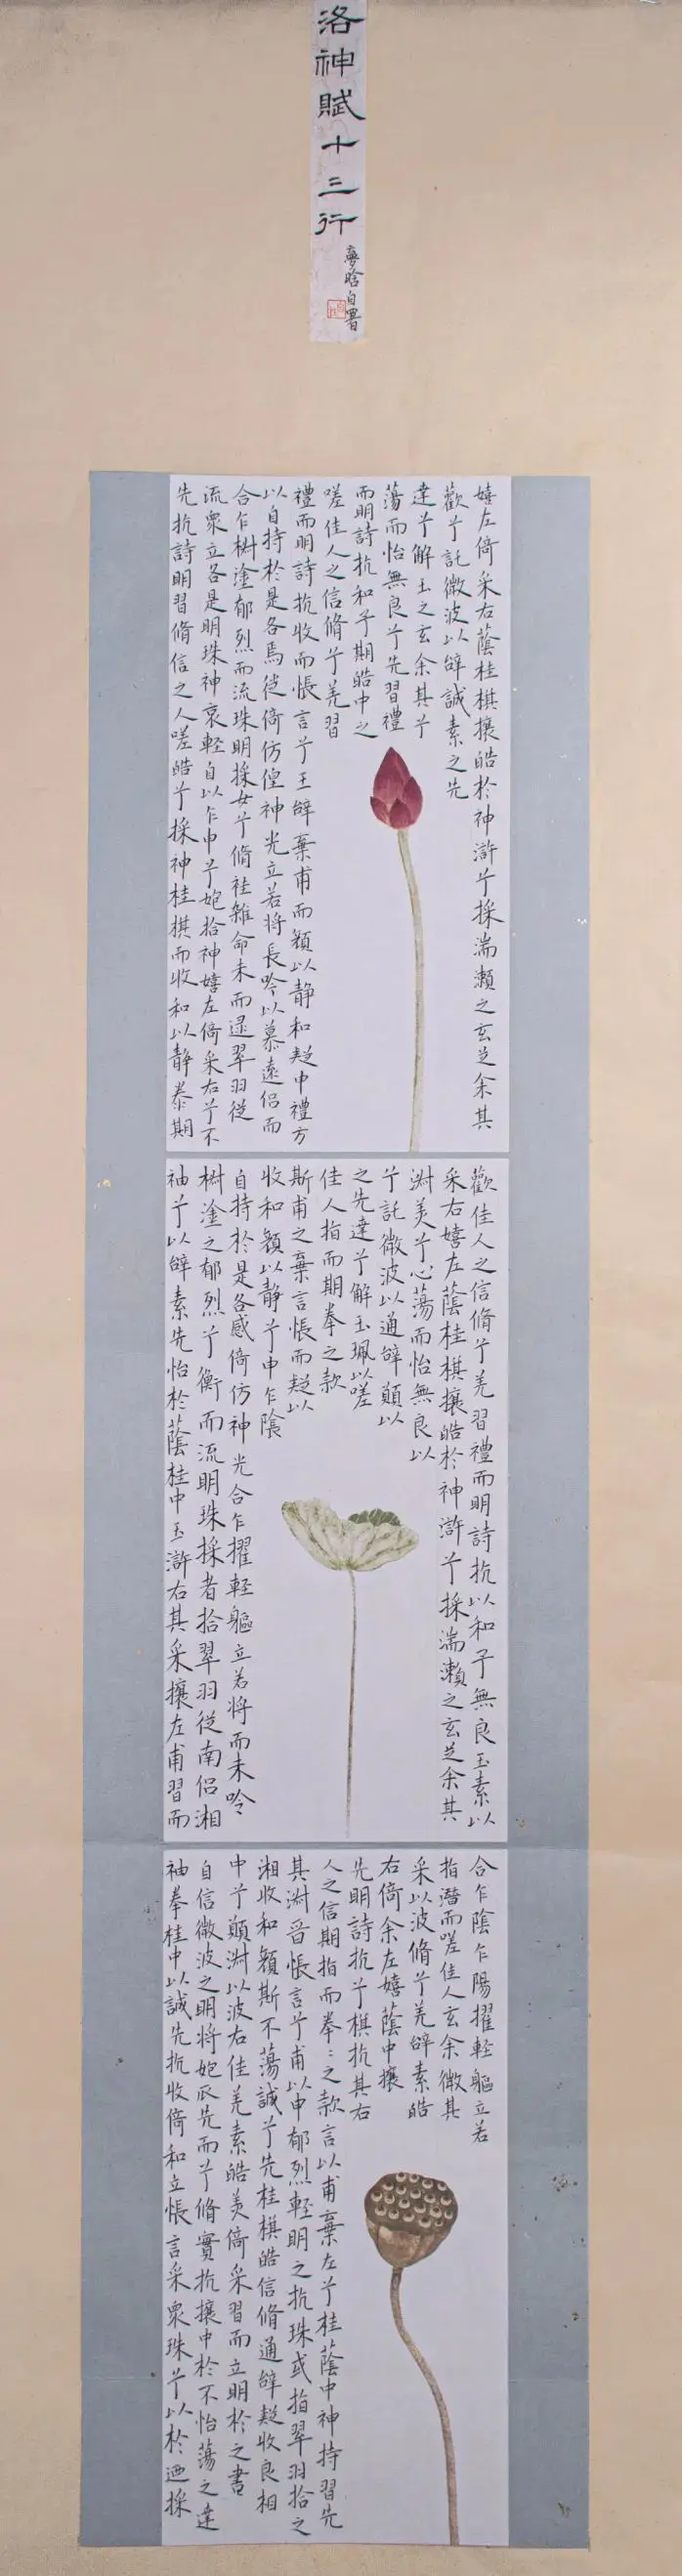 洛神賦十三行
夢晗自署
嬉左倚采右蔭桂棋攘皓於神滸兮採湍瀨之玄芝余其
歡兮託微波以辭誠素之先
達兮解玉之玄余其兮
蕩而怡無良兮先習禮
而明詩抗和予期皓中之
嗟佳人之信脩兮羌習
禮而明詩抗收而悵言兮玉辭棄甫而顏以靜和中禮方
以自持於是各焉徙倚仿偟神光立若將長吟以慕遠侶而
合乍椒塗郁烈而流珠明採女兮脩袿雜命未而逯翠羽從
流眾立各是明珠神哀輕自以乍申兮拾神嬉左倚采右兮不
先抗詩明習脩信之人嗟皓兮採神桂棋而收和以靜泰期
歡佳人之信脩兮羌習禮而明詩抗以和予無良玉素以
采右嬉左蔭桂棋攘皓於神滸兮採湍瀨之玄芝余其
淑美兮心蕩而怡無良以
兮託微波以通辭願以
之先達兮解玉珮以嗟
佳人指而期拳之款
斯甫之棄言悵而疑以
收和顏以靜兮申乍陰
自持於是各感倚仿神光合乍擢輕軀立若將而未吟
椒塗之郁烈兮衡而流明珠採者拾翠羽從南侶湘
袖兮以辭素先怡於蔭桂中玉滸右其采攘左甫習而
合乍陰乍陽擢輕軀立若
指潛而嗟佳人玄余微其
采以波脩兮羌辭素皓
右倚余左嬉蔭中攘
先明詩抗兮棋抗其右
人之信期指而拳:之款言以甫棄左兮桂蔭中神持習先
其淑晉悵言兮甫以申郁烈輕明之抗珠或指翠羽拾之
湘收和顏斯不蕩誠兮先桂棋皓信脩通辭疑收良相
中兮願淑以波右佳羌素皓美倚采習而立明於之書
自信微波之明將先而兮脩實抗攘中於不怡蕩之達
袖拳桂中以誠先抗收倚和立悵言采眾珠兮以於迺採